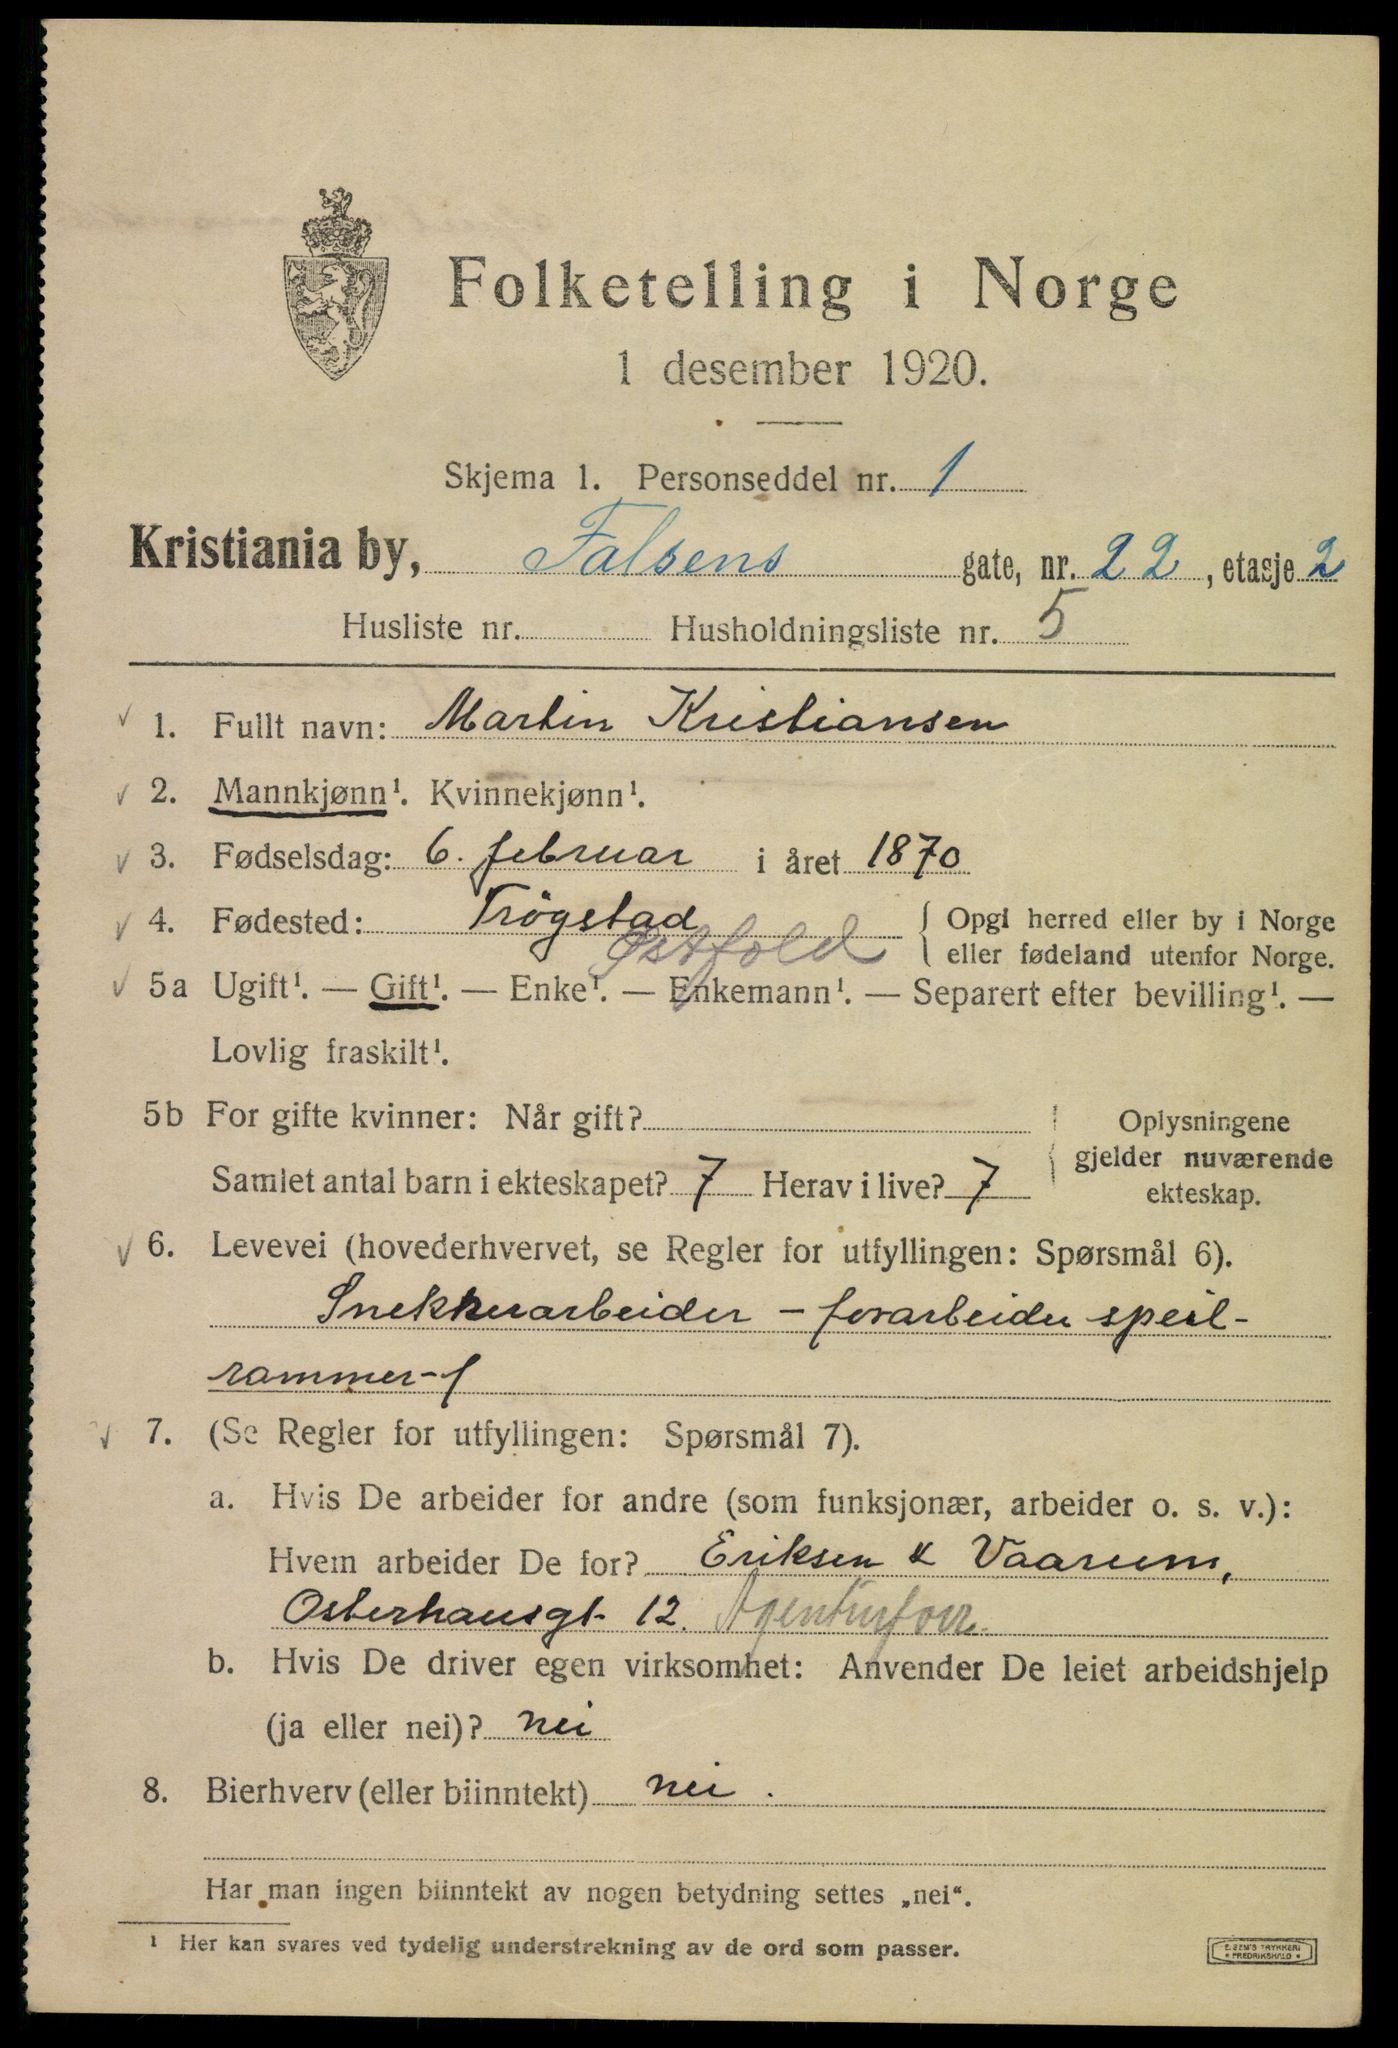 Folketelling i Norge
1 desember 1920.
Skjema 1. Personseddel nr. 1
Kristiania by, Falsens gate, nr. 22, etasje 2
Husliste nr. Husholdningsliste nr. 5
1. Fullt navn: Martin Kristiansen
2. Mannkjønn¹. Kvinnekjønn¹.
3. Fødselsdag: 6. februar i året 1870
4. Fødested: Trögstad { Opgi herred eller by i Norge
Østfold eller fødeland utenfor Norge.
5a Ugift¹. — Gift¹. — Enke¹. — Enkemann¹. — Separert efter bevilling¹. —
Lovlig fraskilt¹.
5b For gifte kvinner: Når gift? Oplysningene
gjelder nuværende
Samlet antal barn i ekteskapet? 7 Herav i live? 7 ekteskap.
6. Levevei (hovederhvervet, se Regler for utfyllingen: Spørsmål 6).
Snekkerarbeider - forarbeider speil-
rammer-f
7. (Se Regler for utfyllingen: Spørsmål 7).
a. Hvis De arbeider for andre (som funksjonær, arbeider o. s. v.):
Hvem arbeider De for? Eriksen & Vaarum,
Osterhausgt. 12. Agenturforr.
b. Hvis De driver egen virksomhet: Anvender De leiet arbeidshjelp
(ja eller nei)? nei
8. Bierhverv (eller biinntekt) nei.
Har man ingen biinntekt av nogen betydning settes „nei“.
¹ Her kan svares ved tydelig understrekning av de ord som passer.
E. SEM'S TRYKKERI
• FREDRIKSHALD •